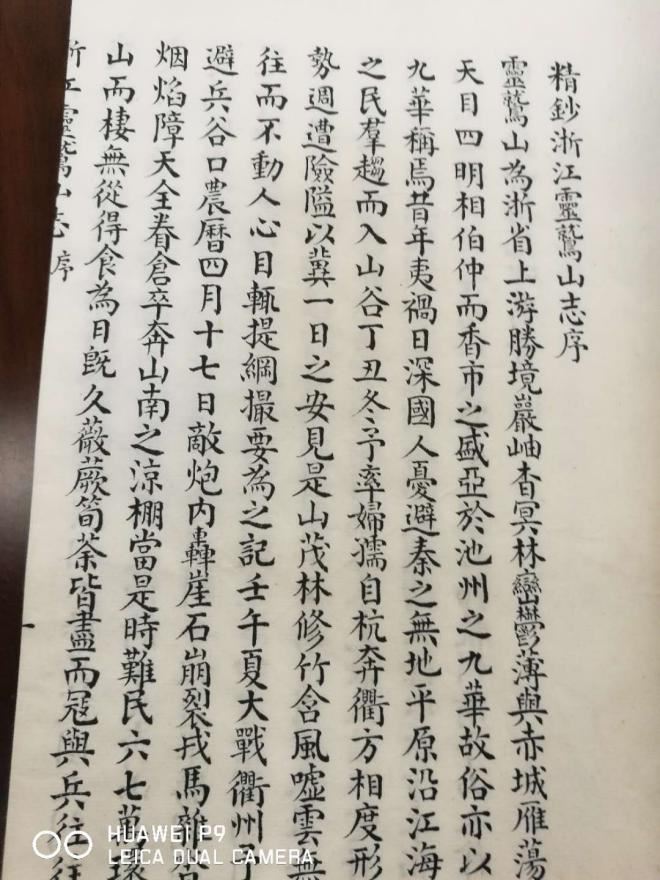 精鈔浙江靈鷲山志序
靈鷲山為浙省上游勝境巖岫杳冥林巒鬱薄與赤城雁蕩
天目四明相伯仲而香市之盛亞於池州之九華故俗亦以
九華稱焉昔年夷禍日深國人憂避秦之無地平原沿江海
之民羣趨而入山谷丁丑冬予率婦孺自杭奔衢方相度形
勢週遭險隘以冀一日之安見是山茂林修竹含風噓雲無
往而不動人心目輒提綱撮要為之記壬午夏大戰衢州予
避兵谷口農曆四月十七日敵炮內轟崖石崩裂戎馬雜沓
烟焰障天全眷倉卒奔山南之涼棚當是時難民六七萬環
山而棲無從得食為日既久薇蕨筍荼皆盡而寇與兵往往
浙江靈鷲山志 序
一
HUAWEI P9
LEICA DUAL CAMERA